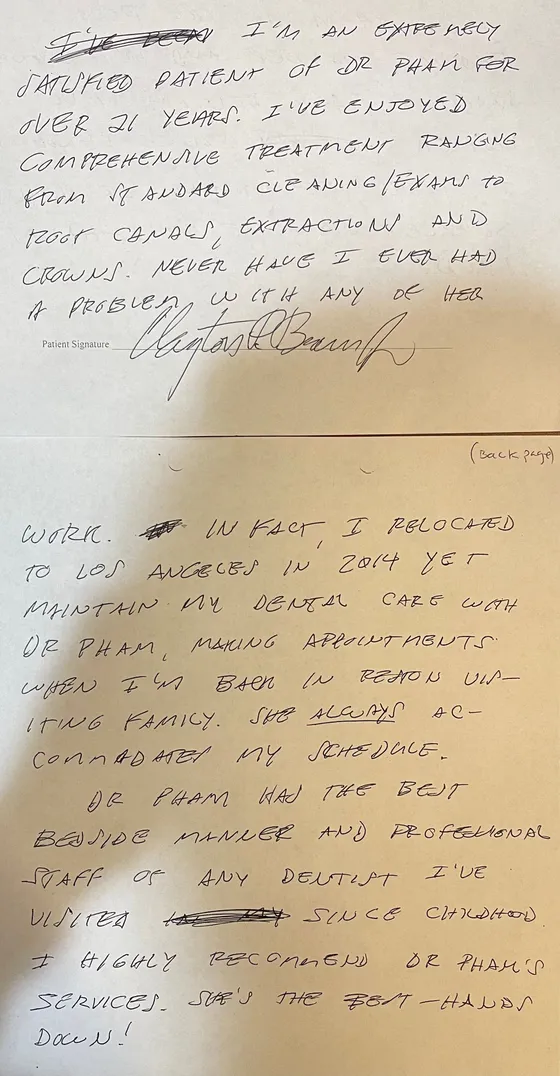 I'M AN EXTREMELY
SATISFIED PATIENT OF DR PHAM FOR
OVER 21 YEARS. I'VE ENJOYED
COMPREHENSIVE TREATMENT RANGING
FROM STANDARD CLEANING/EXAMS TO
ROOT CANALS, EXTRACTIONS AND
CROWNS. NEVER HAVE I EVER HAD
A PROBLEM WITH ANY OF HER
Patient Signature
(Back page)
WORK. IN FACT, I RELOCATED
TO LOS ANGELES IN 2014 YET
MAINTAIN MY DENTAL CARE WITH
DR PHAM, MAKING APPOINTMENTS
WHEN I'M BACK IN REGION VIS-
ITING FAMILY. SHE ALWAYS AC-
COMMADATES MY SCHEDULE.
DR PHAM HAS THE BEST
BEDSIDE MANNER AND PROFESSIONAL
STAFF OF ANY DENTIST I'VE
VISITED SINCE CHILDHOOD
I HIGHLY RECOMMEND DR PHAM'S
SERVICES. SHE'S THE BEST - HANDS
DOWN!